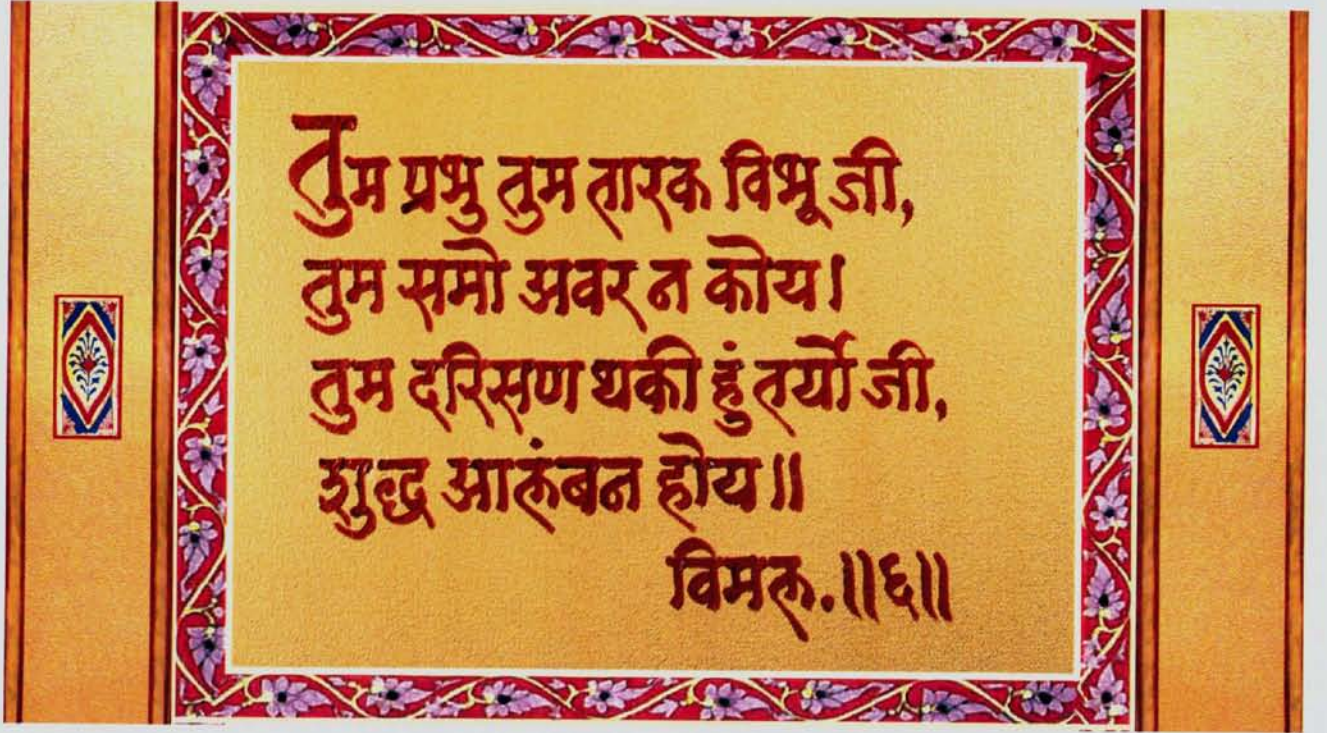 तुम प्रभु तुम तारक विभू जी,
तुम समो अवर न कोय।
तुम दरिसण थकी हुं तर्यो जी,
शुद्ध आलंबन होय॥
विमल.॥६॥